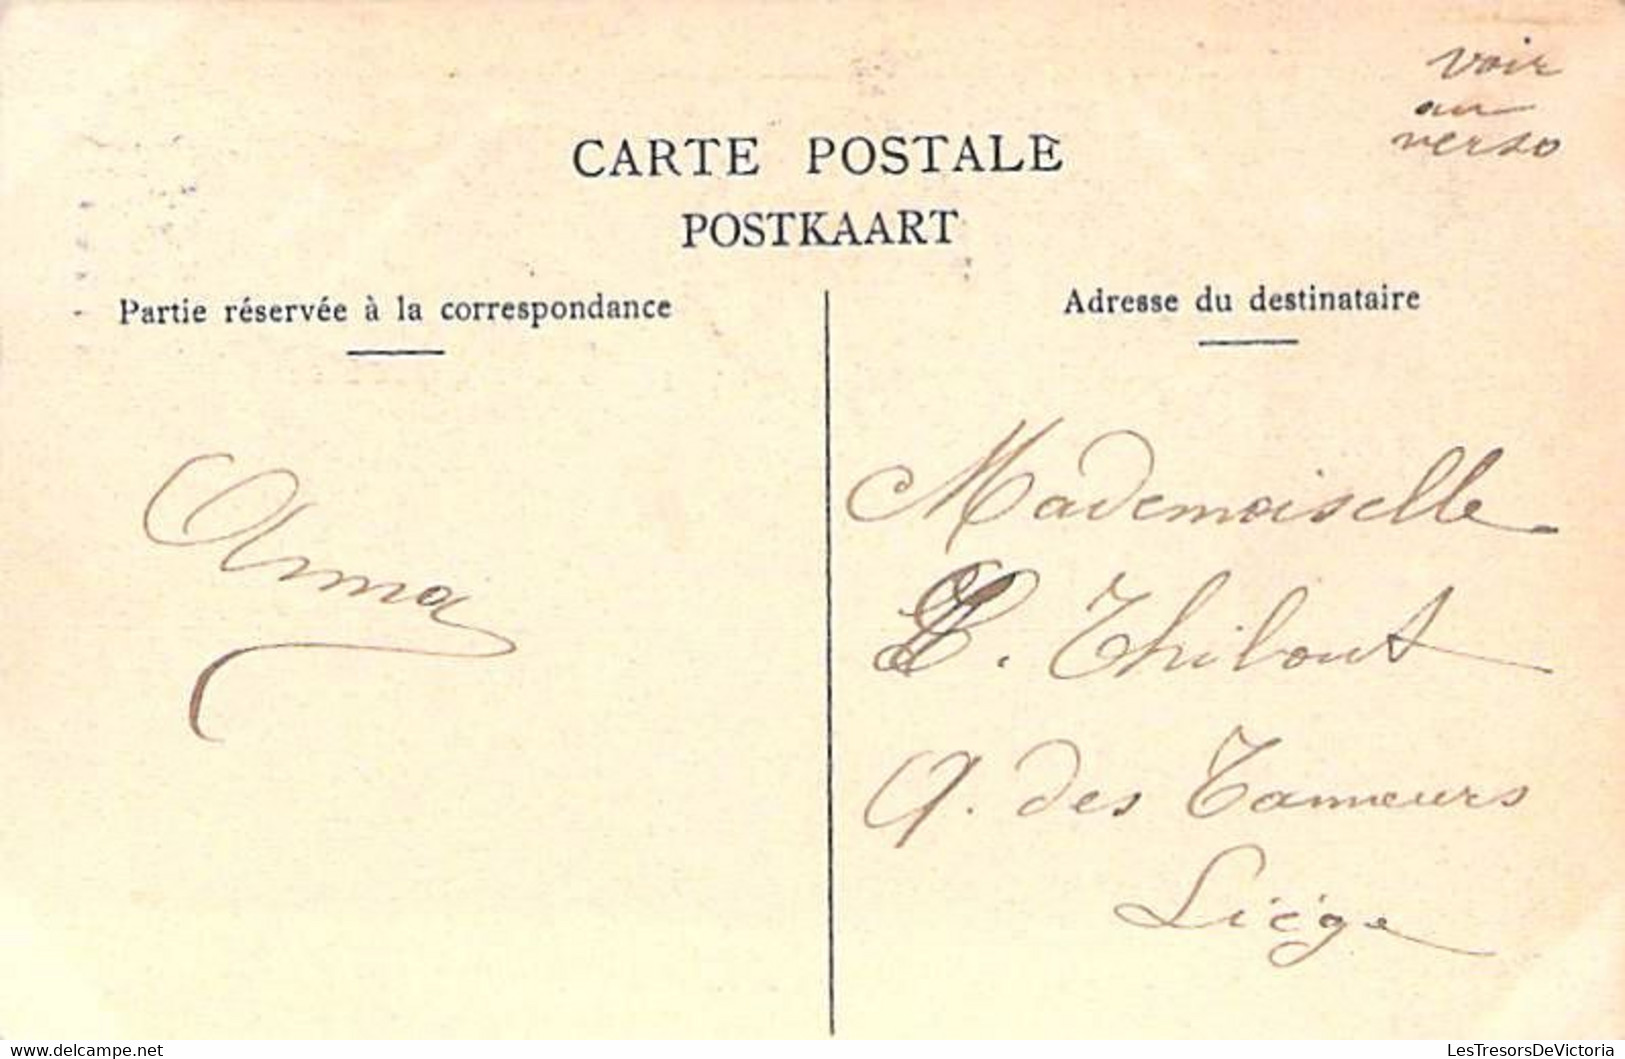 voir
au
verso
CARTE POSTALE
POSTKAART
Partie réservée à la correspondance
Adresse du destinataire
Anna
Mademoiselle
L. Thibout
Q. des Tanneurs
Liège
delcampe.net
LesTresorsDeVictoria